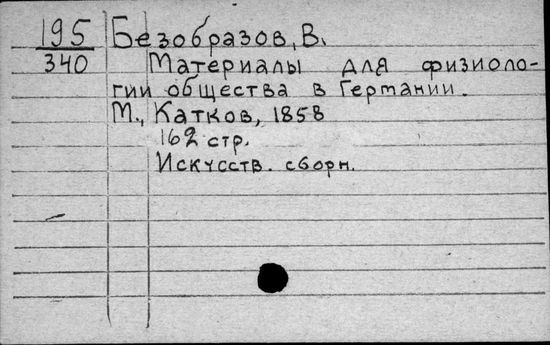 195 Безобразов, В.
340 Материалы для физиоло-
гии общества в Германии.
М., Катков, 1858
162 стр.
Искусств. сборн.